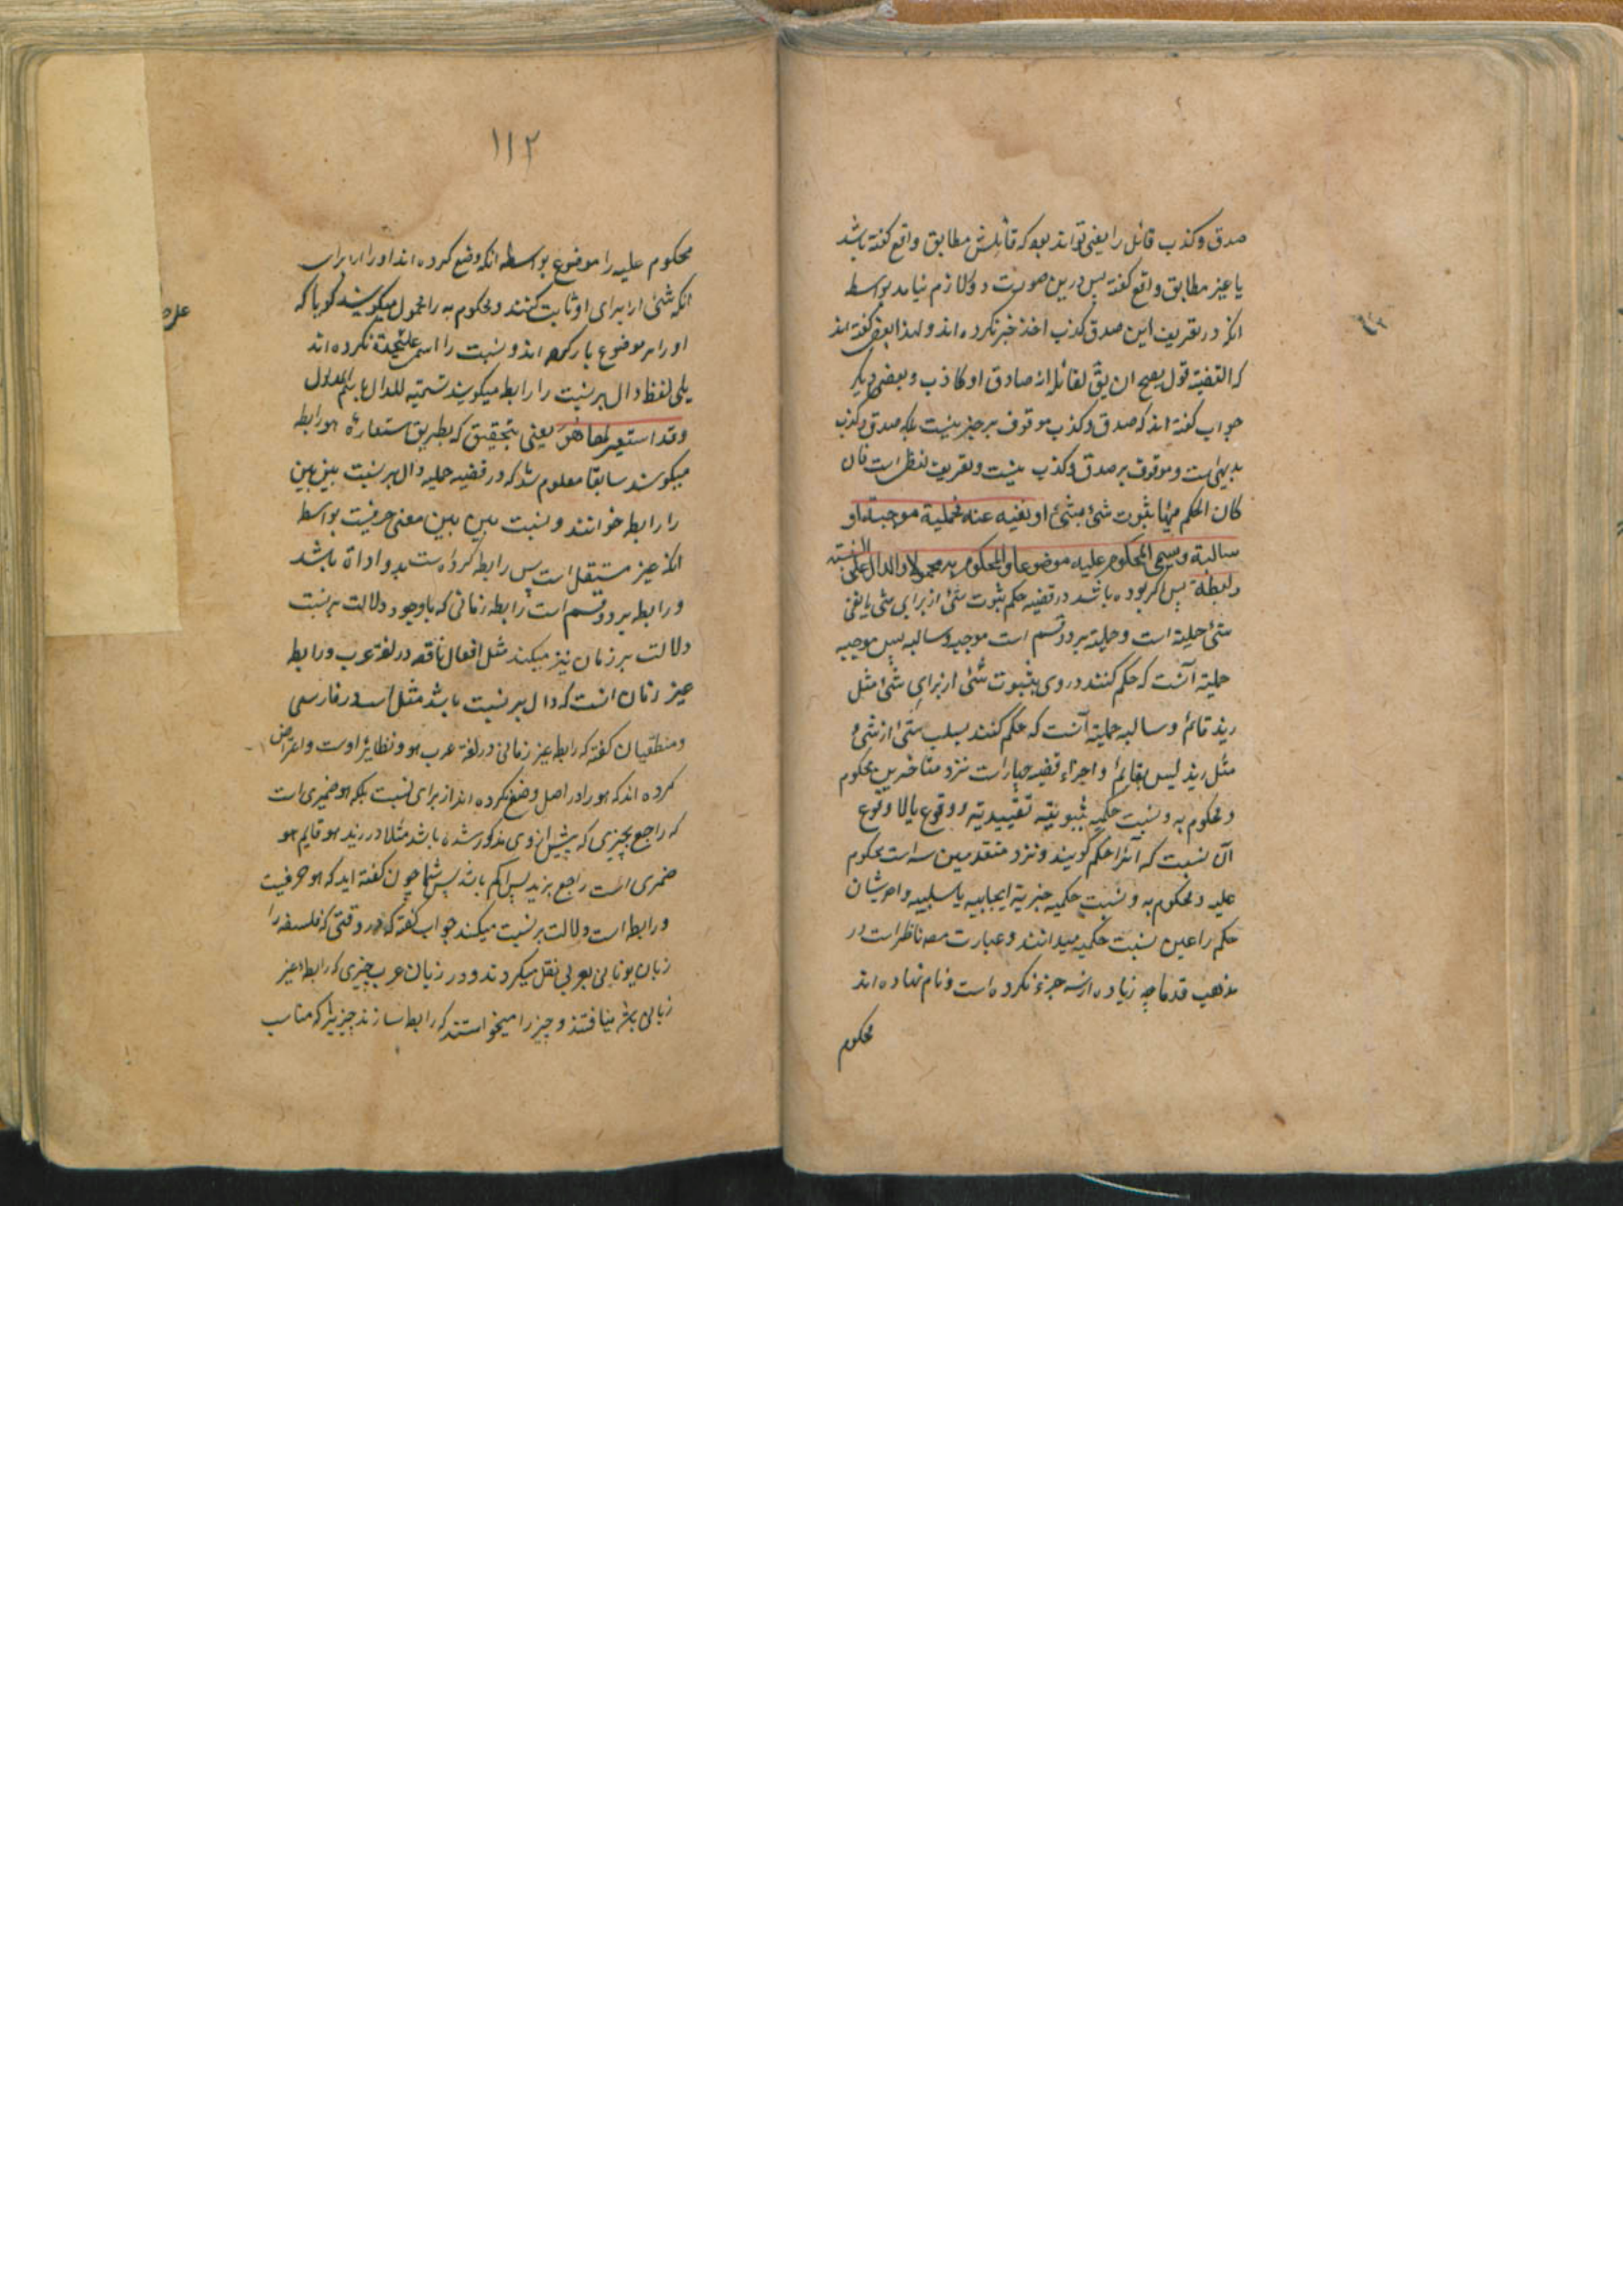 صدق و کذب قائل را یعنی تواند بود که قائلش مطابق واقع گفته باشد
یا غیر مطابق واقع گفته پس درین صورت دور لازم نیامد بواسطه
انکه در تعریف این صدق کذب اخذ خبر نکرده اند و لهذا بعض گفته اند
که القضیة قول یصح ان یق لقائله انه صادق او کاذب و بعضی دیگر
جواب گفته اند که صدق و کذب موقوف بر خبر نیست بلکه صدق و کذب
بدیهیست و موقوف بر صدق و کذب نیست و تعریف لفظی است فان
کان الحکم فیها بثبوت شئ لشئ او نفیه عنه فحملیة موجبة او
سالبة و یسمی المحکوم علیه موضوعا و المحکوم به محمولا و الدال علی النسبة
رابطة پس اگر بوده باشد در قضیه حکم بثبوت شئ از برای شی یا نفی
شئ حملیة است و حملیة بر دو قسم است موجبه و سالبه پس موجبه
حملیة آنست که حکم کنند در وی بثبوت شئ از برای شئ مثل
زید قائم و سالبه حملیة آنست که حکم کنند بسلب شئ از شئ
مثل زید لیس بقائم و اجزاء قضیه چهار است نزد متاخرین محکوم
و محکوم به و نسبت حکمیه ثبوتیه تقییدیة و وقوع یا لا وقوع
آن نسبت که آنرا حکم گویند و نزد متقدمین سه است محکوم
علیه و محکوم به و نسبت حکمیه خبریة ایجابیه یا سلبیه و ایشان
حکم را عین نسبت حکمیه میدانند و عبارت مصه ناظر است در
مذهب قدما چه زیاده از سه جزء نکرده است و نام نهاده اند
محکوم
١١٢
محکوم علیه را موضوع بواسطه انکه وضع کرده اند او را از برای
انکه شئ را برای او ثابت کنند و محکوم به را محمول میگویند گویا که
او را بر موضوع بار کرده اند و نسبت را اسم علیحدة نکرده اند
بلی لفظ دال بر نسبت را رابط میگویند تسمیة للدال باسم المدلول
و قد استعیر لها هو یعنی بتحقیق که بطریق استعارة هو رابطه
میگویند سابقا معلوم شد که در قضیه حملیه دال بر نسبت بین بین
را رابطه خوانند و نسبت بین بین معنی حرفیست بواسطه
انکه غیر مستقل است پس رابطه
و رابطه بر دو قسم است رابطه زمانی که باوجود دلالت بر نسبت
دلالت بر زمان نیز میکند مثل افعال ناقصه در لغة عرب و رابطه
غیر زمان انست که دال بر نسبت باشد مثل است در فارسی
و منطقیان گفته که رابط غیر زمانی در لغة عرب هو و نظایر اوست و اعتراض
کرده اند که هو را در اصل وضع نکرده اند از برای نسبت بلکه هو ضمیری است
که راجع بچیزی که پیش از وی مذکور شده باشد مثلا در زید هو قایم هو
ضمیری است راجع بزید پس اسم باشد پس شما چون گفته اید که هو حرفیست
و رابط است و دلالت بر نسبت میکند جواب گفته که در وقتی که فلسفه را
زبان یونانی بعربی نقل میکردند و در زبان عرب چیزی که رابطه غیر
زمانی باشد نیافتند و چیز را میخواستند که رابط سازند چیزیرا که مناسب